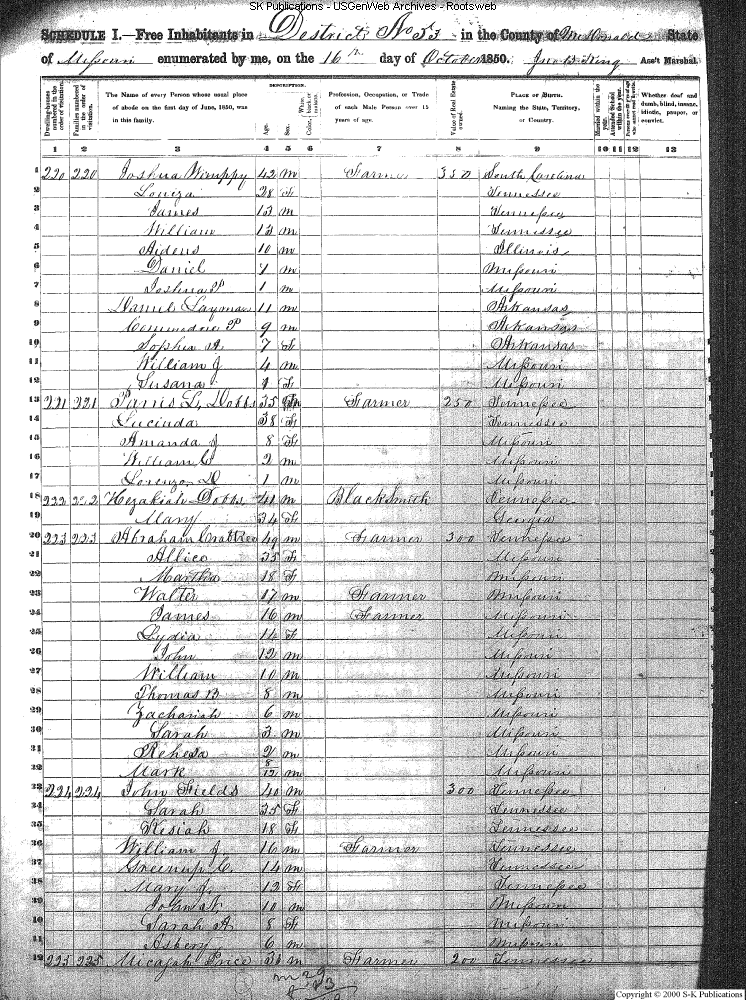 SK Publications - USGenWeb Archives - Rootsweb
SCHEDULE I.—Free Inhabitants in District No 53 in the County of McDonald State
of Missouri enumerated by me, on the 16th day of October 1850. Jno B King Ass't Marshal.
Dwelling-houses numbered in the order of visitation.
Families numbered in the order of visitation.
The Name of every Person whose usual place of abode on the first day of June, 1850, was in this family.
DESCRIPTION.
Age.
Sex.
Color, White, black, or mulatto.
Profession, Occupation, or Trade of each Male Person over 15 years of age.
Value of Real Estate owned.
PLACE OF BIRTH. Naming the State, Territory, or Country.
Married within the year.
Attended School within the year.
Persons over 20 y'rs of age who cannot read & write.
Whether deaf and dumb, blind, insane, idiotic, pauper, or convict.
1 2 3 4 5 6 7 8 9 10 11 12 13
1 220 220 Joshua Wimppy 42 m Farmer 350 South Carolina
2 Louiza 28 F Tennessee
3 James 13 m Tennessee
4 William 13 m Tennessee
5 Aidens 10 m Illinois
6 Daniel 7 m Missouri
7 Joshua P 1 m Missouri
8 Daniel Layman 11 m Arkansas
9 Commodore P 9 m Arkansas
10 Sophia A 7 F Arkansas
11 William J 4 m Missouri
12 Susana 1 F Missouri
13 221 221 L. Dobbs 35 Farmer 250 Tennessee
14 Lucinda 38 F Tennessee
15 Amanda J 8 F Missouri
16 William C 2 m Missouri
17 Lorenzo D 1 m Missouri
18 222 222 Hezakiah Dobbs 41 m Blacksmith Tennessee
19 Mary 34 F Georgia
20 223 223 Abraham Crabtree 49 m Farmer 300 Tennessee
21 Allice 35 F Missouri
22 Martha 18 F Missouri
23 Walter 17 m Farmer Missouri
24 James 16 m Farmer Missouri
25 Lydia 14 F Missouri
26 John 12 m Missouri
27 William 10 m Missouri
28 Thomas B 8 m Missouri
29 Zachariah 6 m Missouri
30 Sarah 3 m Missouri
31 2 m Missouri
32 Mark 8/12 m Missouri
33 224 224 John Fields 40 m 300 Tennessee
34 Sarah 35 F Tennessee
35 Kesiah 18 F Tennessee
36 William J 16 m Farmer Tennessee
37 Greenup C. 14 m Tennessee
38 Mary J. 12 F Tennessee
39 John 10 m Missouri
40 Sarah A 8 F Missouri
41 Asbery 6 m Missouri
42 225 225 Micajah Price 31 m Farmer 200 Tennessee
m 29
F 13
Copyright © 2000 S-K Publications